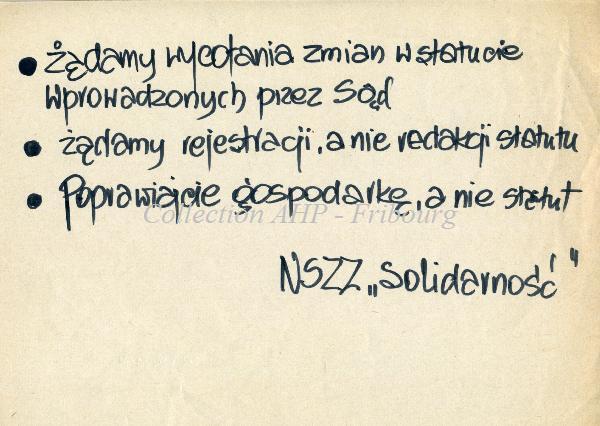 • Żądamy wycofania zmian w statucie
wprowadzonych przez Sąd
• żądamy rejestracji, a nie redakcji statutu
• Poprawiajcie gospodarkę, a nie statut
Collection AHP - Fribourg
NSZZ „Solidarność”